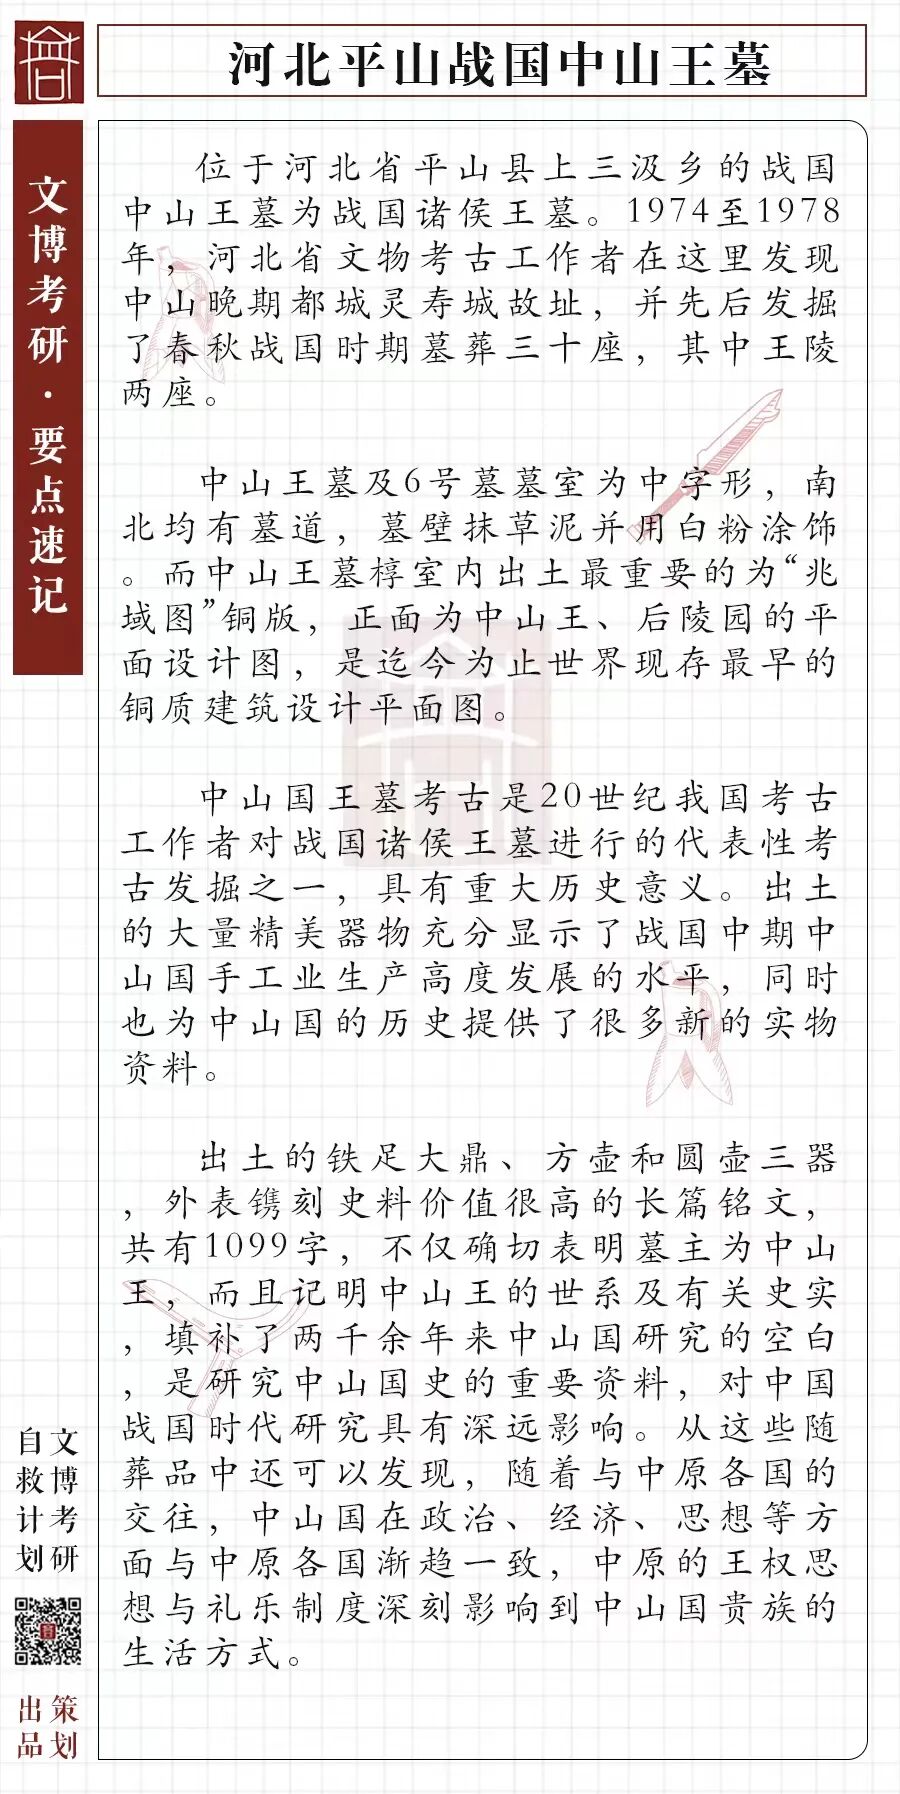 河北平山战国中山王墓
文博考研·要点速记
位于河北省平山县上三汲乡的战国
中山王墓为战国诸侯王墓。1974至1978
年，河北省文物考古工作者在这里发现
中山晚期都城灵寿城故址，并先后发掘
了春秋战国时期墓葬三十座，其中王陵
两座。
中山王墓及6号墓墓室为中字形，南
北均有墓道，墓壁抹草泥并用白粉涂饰
。而中山王墓椁室内出土最重要的为“兆
域图”铜版，正面为中山王、后陵园的平
面设计图，是迄今为止世界现存最早的
铜质建筑设计平面图。
中山国王墓考古是20世纪我国考古
工作者对战国诸侯王墓进行的代表性考
古发掘之一，具有重大历史意义。出土
的大量精美器物充分显示了战国中期中
山国手工业生产高度发展的水平，同时
也为中山国的历史提供了很多新的实物
资料。
出土的铁足大鼎、方壶和圆壶三器
，外表镌刻史料价值很高的长篇铭文，
共有1099字，不仅确切表明墓主为中山
王，而且记明中山王的世系及有关史实
，填补了两千余年来中山国研究的空白
，是研究中山国史的重要资料，对中国
战国时代研究具有深远影响。从这些随
葬品中还可以发现，随着与中原各国的
交往，中山国在政治、经济、思想等方
面与中原各国渐趋一致，中原的王权思
想与礼乐制度深刻影响到中山国贵族的
生活方式。
文博考研
自救计划
策划
出品